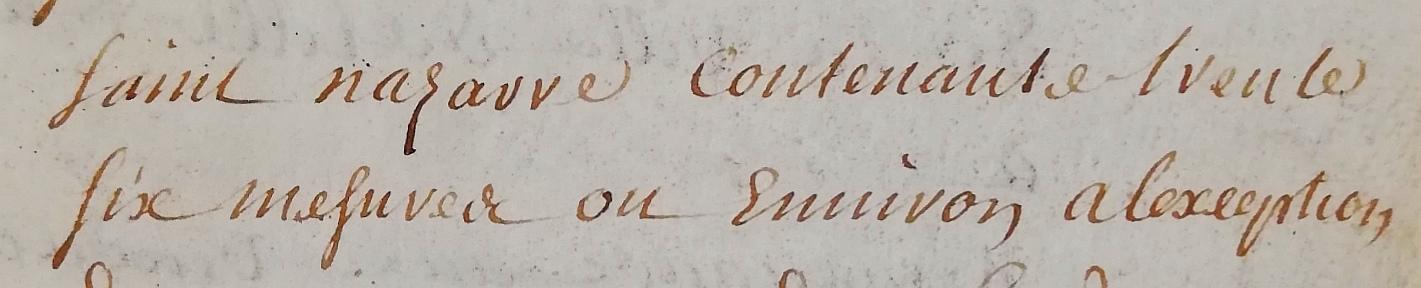 saint nazarre Contenante trente
six mesures ou Enuiron alexception